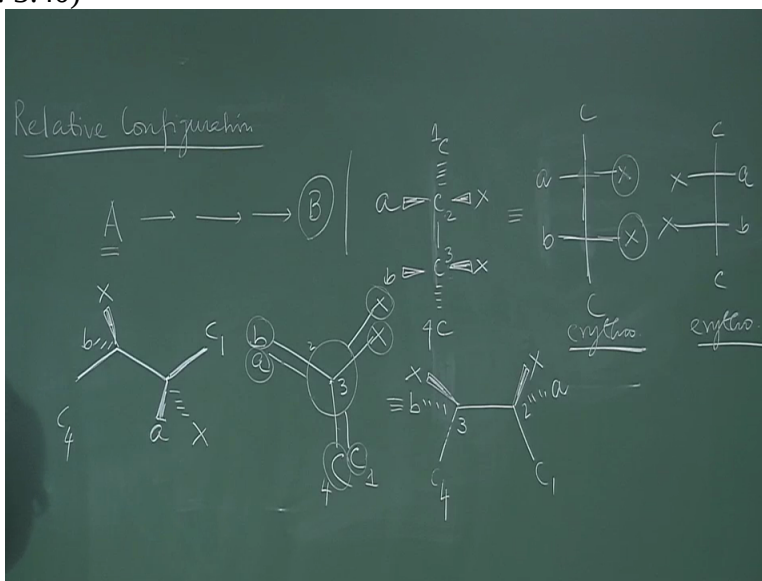 Relative Configuration
A → → → B
1
C
a C2 X
b C3 X
4C
≡
C
a X
b X
C
erythro.
C
X a
X b
C
erythro.
X
b
C4
C1
a X
b
a
2
X
X
3
4
C C
1
≡
X
b
3
C4
X
2 a
C1